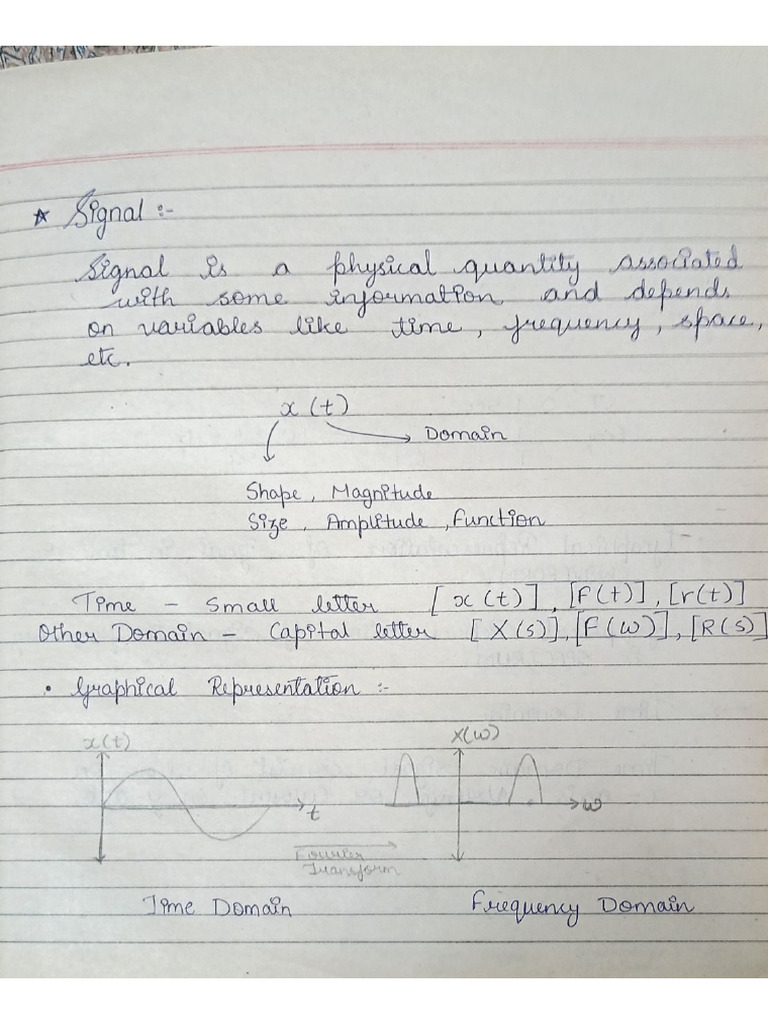 ☆ Signal :-
Signal is a physical quantity associated
with some information and depends
on variables like time, frequency, space,
etc.
x (t)
Domain
Shape, Magnitude
Size, Amplitude, Function
Time - Small letter [x(t)], [f(t)], [r(t)]
Other Domain - Capital letter [X(s)], [F(w)], [R(s)]
• Graphical Representation :-
x(t) X(w)
t w
Fourier
Transform
Time Domain Frequency Domain